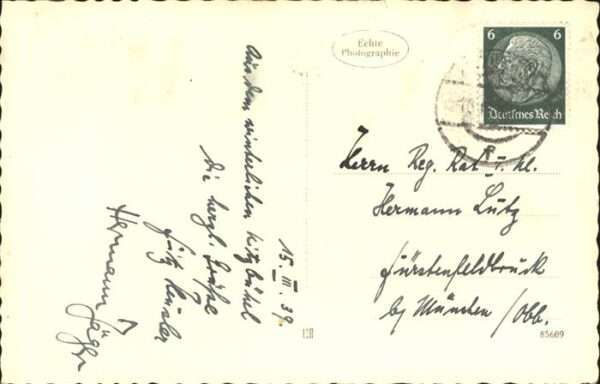 15. III. 39.
Aus dem winterlichen Kitzbühel
die herzl. Grüße
Fritz
Hermann Jäger
Echte
Photographie
6 6
Deutsches Reich
Herrn Reg. Rat
Hermann Lutz
Fürstenfeldbruck
bg München /Obb.
85609